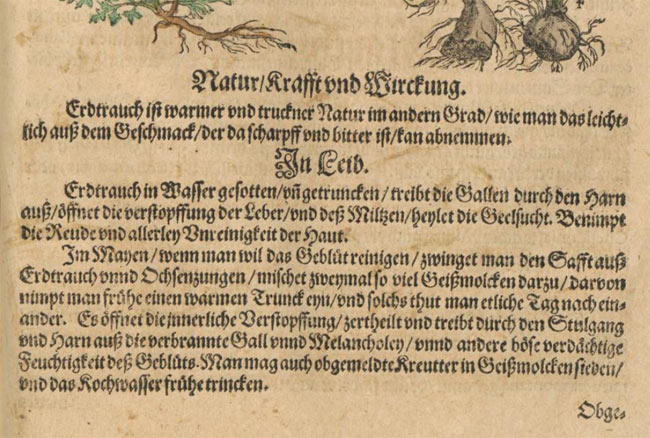 Natur/Krafft vnd Wirckung.
Erdtrauch ist warmer vnd truckner Natur im andern Grad/ wie man das leicht-
lich auß dem Geschmack/ der da scharpff vnd bitter ist/ kan abnemmen.
In Leib.
Erdtrauch in Wasser gesotten/ vñ getruncken/ treibt die Gallen durch den Harn
auß/ öffnet die verstopffung der Leber/ vnd deß Miltzen/ heylet die Geelsucht. Benimpt
die Reude vnd allerley Vnreinigkeit der Haut.
Im Mayen/ wenn man wil das Geblüt reinigen/ zwinget man den Safft auß
Erdtrauch vnnd Ochsenzungen/ mischet zweymal so viel Geißmolcken darzu/ darvon
nimpt man frühe einen warmen Trunck eyn/ vnd solchs thut man etliche Tag nach ein-
ander. Es öffnet die jnnerliche Verstopffung/ zertheilt vnd treibt durch den Stulgang
vnd Harn auß die verbrannte Gall vnnd Melancholey/ vnnd andere böse verdächtige
Feuchtigkeit deß Geblüts. Man mag auch obgemeldte Kreutter in Geißmolcken sieden/
vnd das Kochwasser frühe trincken.
Obge-